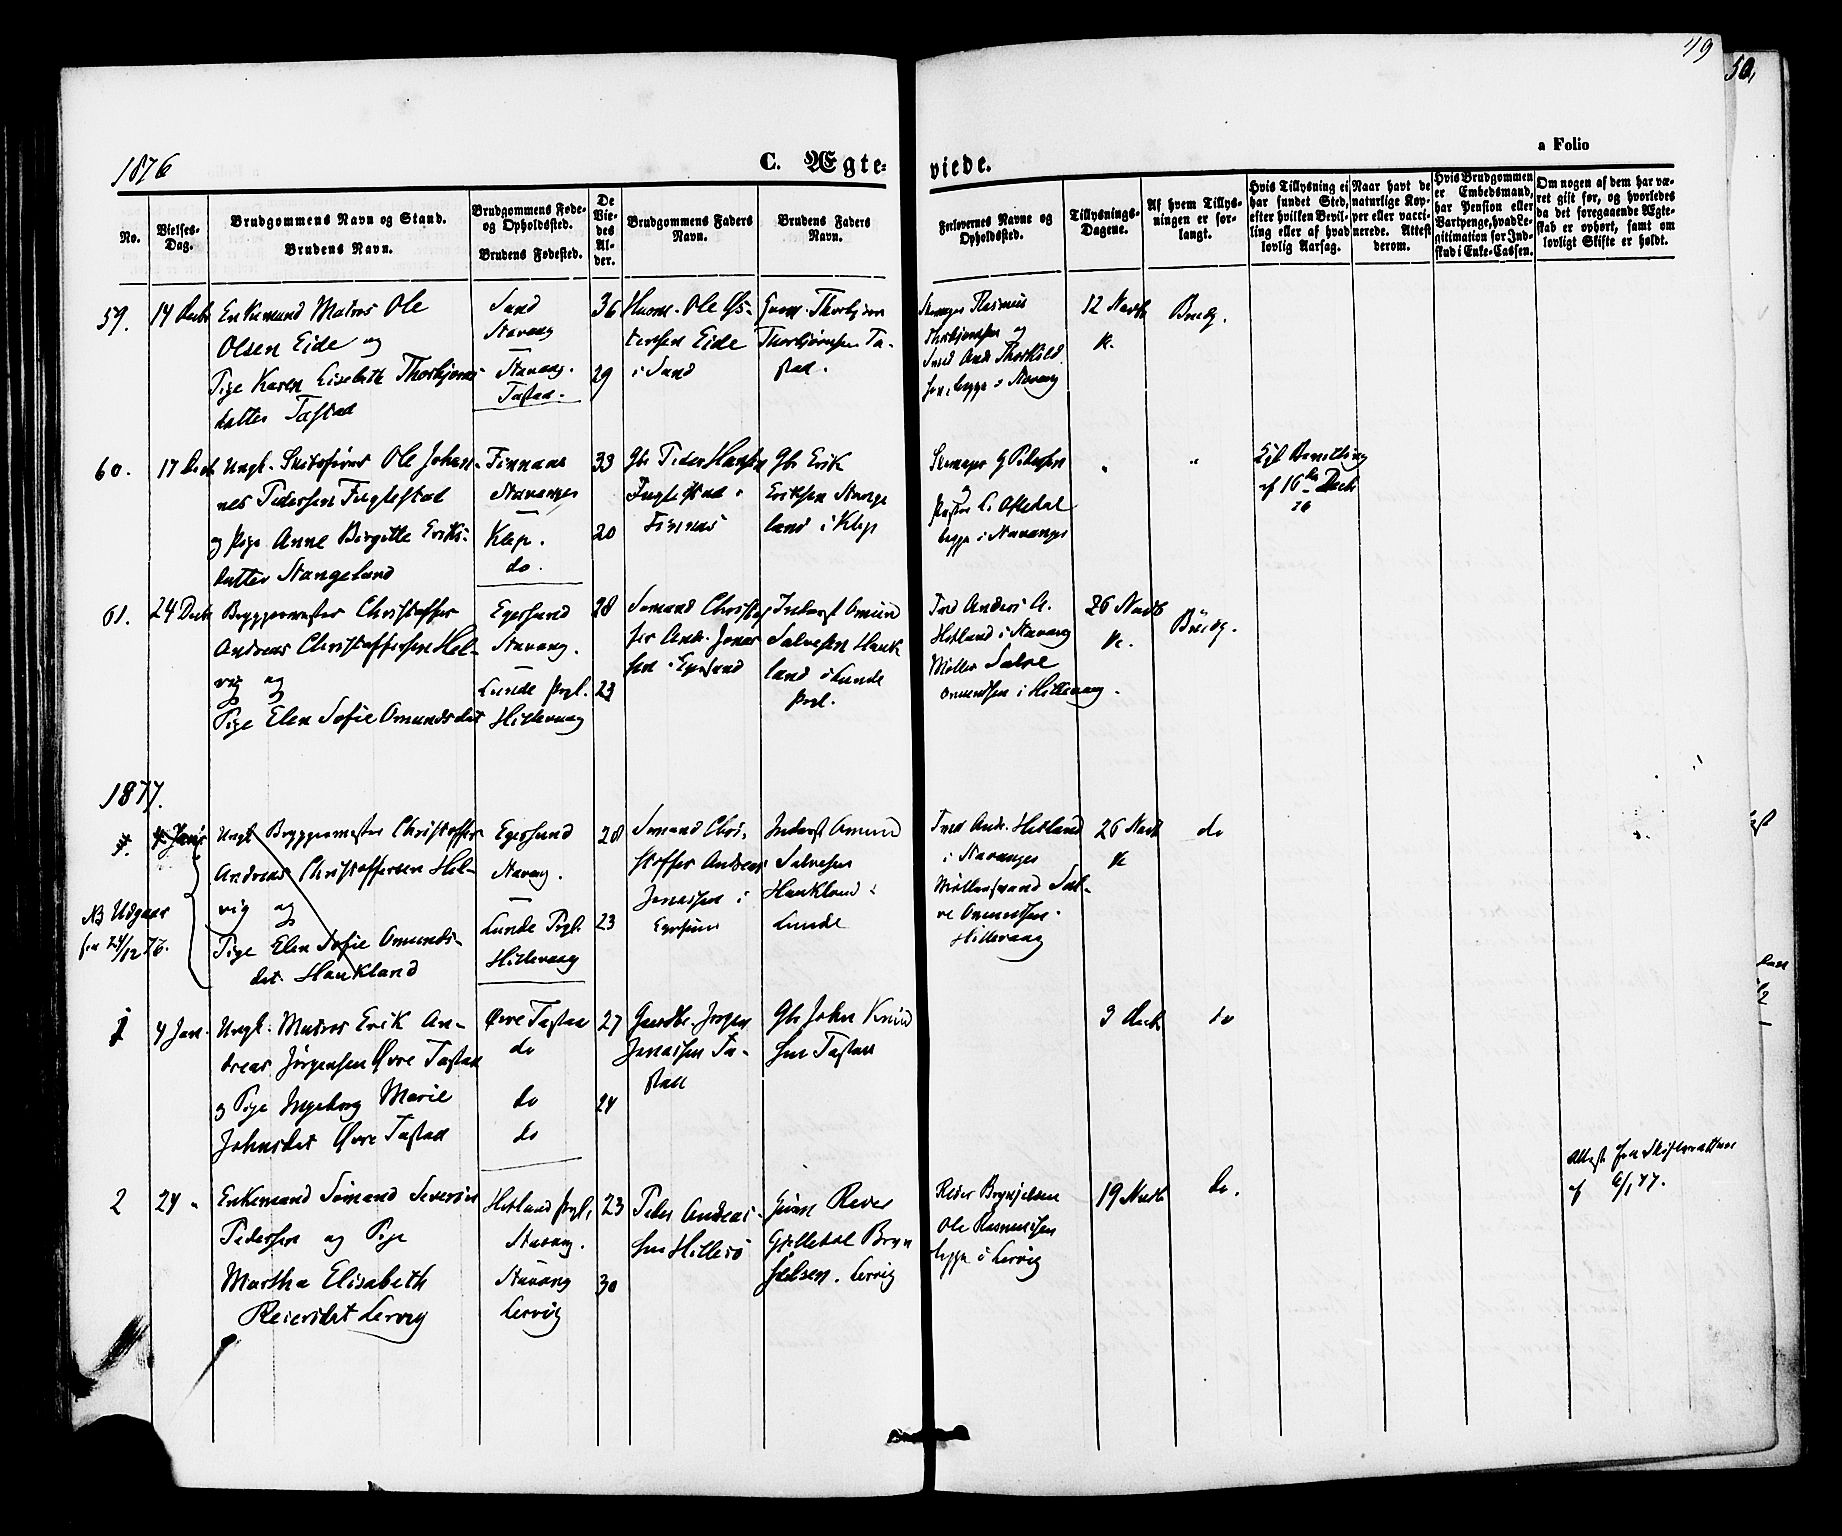 49
50,
a Folio
1876
C. Ægte-
viede.
No.
Vielses-
Dag.
Brudgommens Navn og Stand.
Brudens Navn.
Brudgommens Føde-
og Opholdssted.
Brudens Fødested.
De
Vie-
des
Al-
der.
Brudgommens Faders
Navn.
Brudens Faders
Navn.
Forlovernes Navne og
Opholdssted.
Tillysnings-
Dagene.
Af hvem Tillys-
ningen er for-
langt.
Hvis Tillysning ei
har fundet Sted,
efter hvilken Bevil-
ling eller af hvad
lovlig Aarsag.
Naar havt de
naturlige Kop-
per eller vacci-
nerede. Attest
derom.
Hvis Brudgommen
er Embedsmand,
har Pension eller
Vartpenge, hvad Le-
gitimation for Ind-
skud i Enke-Cassen.
Om nogen af dem har væ-
ret gift før, og hvorledes
da det foregaaende Ægte-
skab er ophørt, samt om
lovligt Skifte er holdt.
59.
14 Decbr
Enkemand Matros Ole
Olsen Eide og
Pige Karen Lisebeth Thorbjørns
datter Tastad
Sand
Stavang
Stavang.
Tastad.
36
29
Huusm. Ole
Eide
i Sand
Thorbjørn
Thorbjørnsen Ta-
stad.
Rasmus
Thorbjørnsen og
Sned And Thorkild
sen, begge i Stavang
12 Novb
K.
Brudg.
60.
17 Decb
Ungk. Skibsfører Ole Johan-
nes Pedersen Fuglestad
og Pige Anne Birgitte Eriks-
datter Stangeland
Finnaas
Stavanger
Klep.
do.
33
20
Gbr Peder Hansen
Fuglestad i
Finnaas
Gbr Erik
Eriksen Stange
land i Klep
Skomager G Pedersen
og
L. Aftedal
begge i Stavanger
"
"
Kgl Bevilling
af 16de Decb
76
61.
24 Decb
Bryggermester Christoffer
Andreas Christoffersen Hel-
vig og
Pige Elen Sofie Omundsdat
Egersund
Stavang.
Lunde Prgl.
Hillevaag
28
23
Sømand Christof
fer Andr. Jonas
sen i Egersund
Inderst Omund
Salvesen Hauk
land i Lunde
Prgl.
Snd Anders A.
Hetland i Stavang
Møller Salve
Omundsen i Hillevaag.
26 Novb
K.
Brudg.
1877.
1.
4 Janr
NB Udgaar
fra 24/12 76.
Ungk Bryggermester Christoffer
Andreas Christoffersen Hel-
vig og
Pige Elen Sofie Omunds-
dat Haukland
Egersund
Stavang.
Lunde Prgl.
Hillevaag
28
23
Sømand Chri-
stoffer Andreas
Jonassen i
Egersund
Inderst Omund
Salvesen
Haukland i
Lunde
Snd And. Hetland
i Stavanger
Møllersvend Sal-
ve Omundsen.
Hillevaag
26 Novb
K
do
1
4 Jan.
Ungk. Matros Erik An-
dreas Jørgensen Øvre Tastad
og Pige Ingeborg Marie
Johnsdat Øvre Tastad
Øvre Tastad
do
do
do
27
24
Gaardbr. Jørgen
Jonassen Ta-
stad
Gbr John Knud
sen Tastad
3 Decb
do
2
24 "
Enkemand Sømand Severin
Pedersen og Pige
Martha Elisabeth
Reiersdat Lervig
Hetland Prgl.
Stavang.
Stavang
Lervig
23
30
Peder Andreas-
sen Hillesø
Reier
Gjilledal Bryn
jelsen. Lervig
Reier Brynjelsen
Ole Rasmussen
begge i Lervig
19 Novb
do.
Attest fra Skifteretten
af 6/1 77.